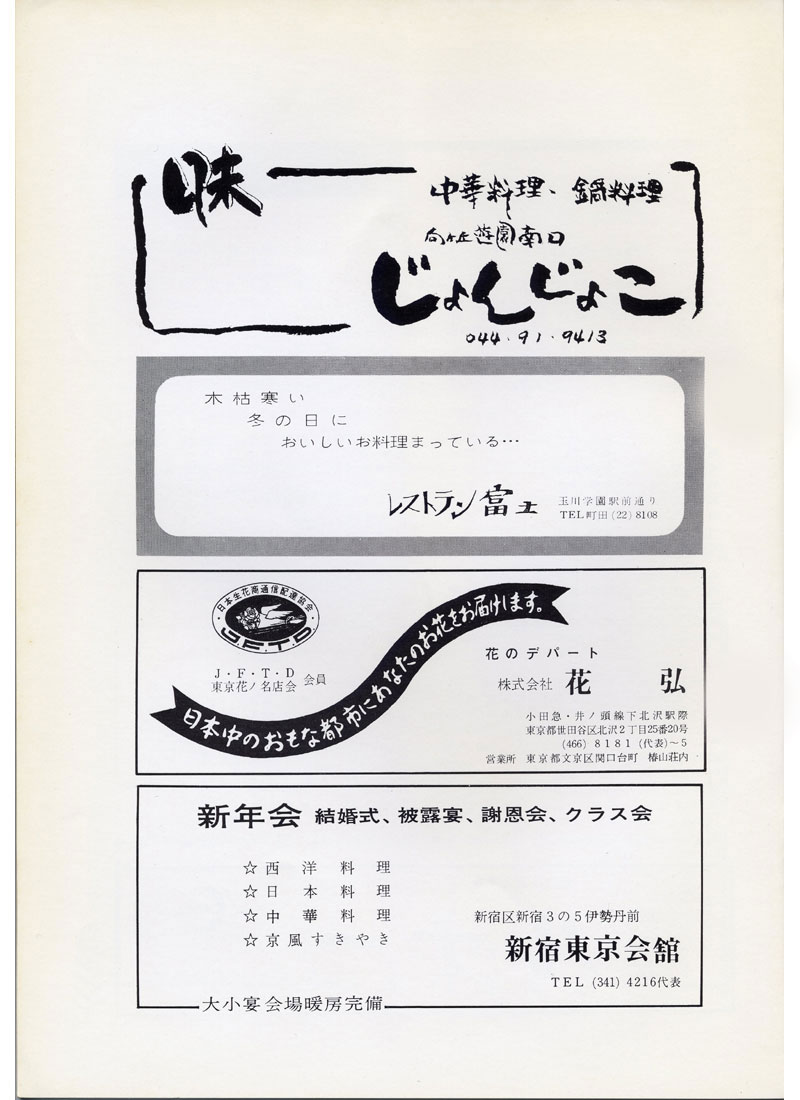 味
中華料理、鍋料理
向ヶ丘遊園南口
じょんじょこ
044・91・9413
木枯寒い
冬の日に
おいしいお料理まっている…
レストラン富士
玉川学園駅前通り
TEL町田(22)8108
・日本生花商通信配達協会・
J.F.T.D
J・F・T・D
東京花ノ名店会 会員
日本中のおもな都市にあなたのお花をお届けします。
花のデパート
株式会社 花弘
小田急・井ノ頭線下北沢駅際
東京都世田谷区北沢2丁目25番20号
(466) 8181 (代表)～5
営業所 東京都文京区関口台町 椿山荘内
新年会 結婚式、被露宴、謝恩会、クラス会
☆西洋料理
☆日本料理
☆中華料理
☆京風すきやき
新宿区新宿3の5伊勢丹前
新宿東京会舘
TEL (341) 4216代表
大小宴会場暖房完備